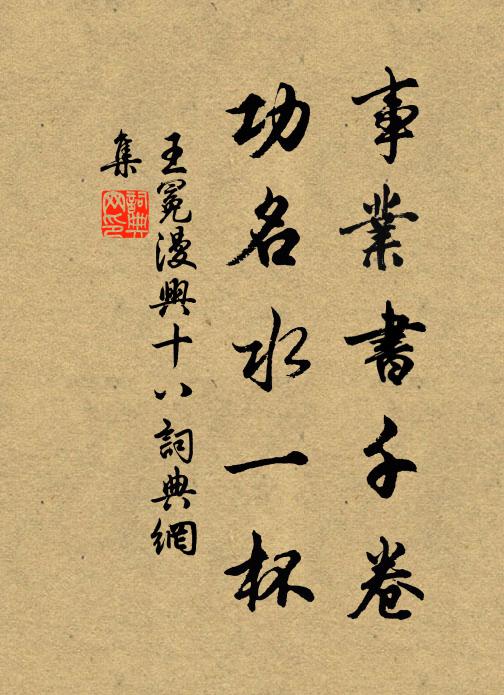 事業書千卷
功名水一杯
王冕漫興十八詞典網
集
詞典網印